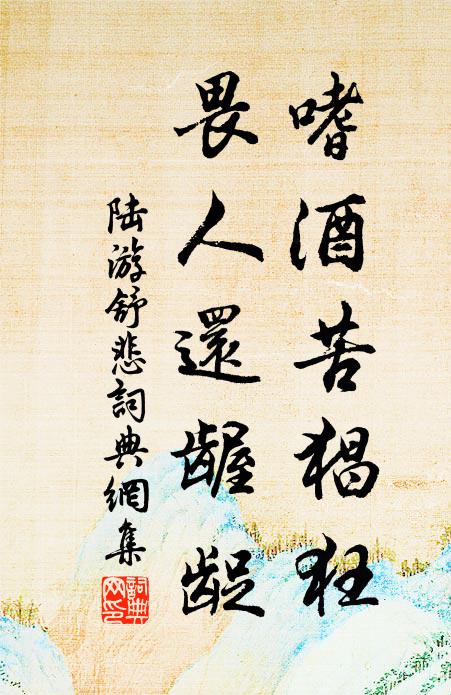 嗜酒苦猖狂
畏人還齷齪
陆游舒悲詞典網集
詞典網印